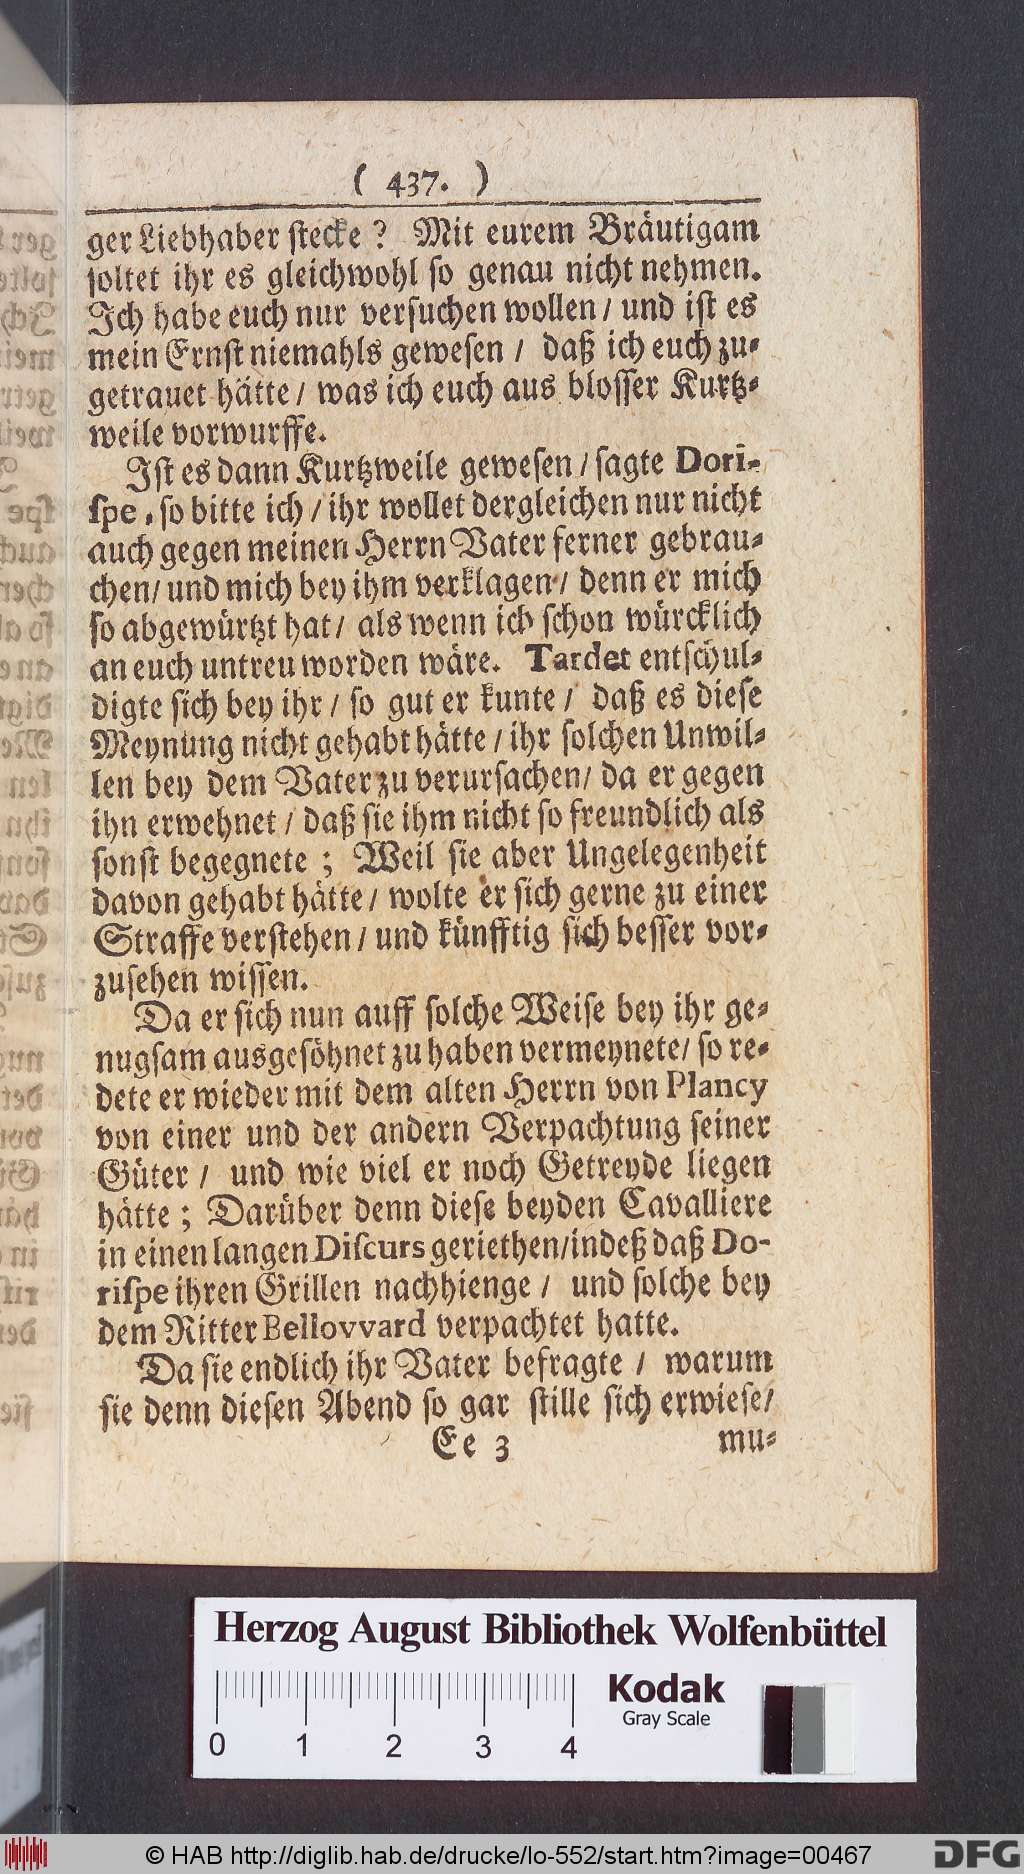 ( 437. )
ger Liebhaber stecke ? Mit eurem Bräutigam
soltet ihr es gleichwohl so genau nicht nehmen.
Ich habe euch nur versuchen wollen / und ist es
mein Ernst niemahls gewesen / daß ich euch zu-
getrauet hätte / was ich euch aus blosser Kurtz-
weile vorwurffe.
Ist es dann Kurtzweile gewesen / sagte Dori-
spe, so bitte ich / ihr wollet dergleichen nur nicht
auch gegen meinen Herrn Vater ferner gebrau-
chen / und mich bey ihm verklagen / denn er mich
so abgewürtzt hat / als wenn ich schon würcklich
an euch untreu worden wäre. Tardet entschul-
digte sich bey ihr / so gut er kunte / daß es diese
Meynung nicht gehabt hätte / ihr solchen Unwil-
len bey dem Vater zu verursachen / da er gegen
ihn erwehnet / daß sie ihm nicht so freundlich als
sonst begegnete ; Weil sie aber Ungelegenheit
davon gehabt hätte / wolte er sich gerne zu einer
Straffe verstehen / und künfftig sich besser vor-
zusehen wissen.
Da er sich nun auff solche Weise bey ihr ge-
nugsam ausgesöhnet zu haben vermeynete / so re-
dete er wieder mit dem alten Herrn von Plancy
von einer und der andern Verpachtung seiner
Güter / und wie viel er noch Getreyde liegen
hätte ; Darüber denn diese beyden Cavalliere
in einen langen Discurs geriethen / indeß daß Do-
rispe ihren Grillen nachhienge / und solche bey
dem Ritter Bellovvard verpachtet hatte.
Da sie endlich ihr Vater befragte / warum
sie denn diesen Abend so gar stille sich erwiese /
Ee 3 mu-
Herzog August Bibliothek Wolfenbüttel
Kodak
Gray Scale
0 1 2 3 4
© HAB http://diglib.hab.de/drucke/lo-552/start.htm?image=00467
DFG